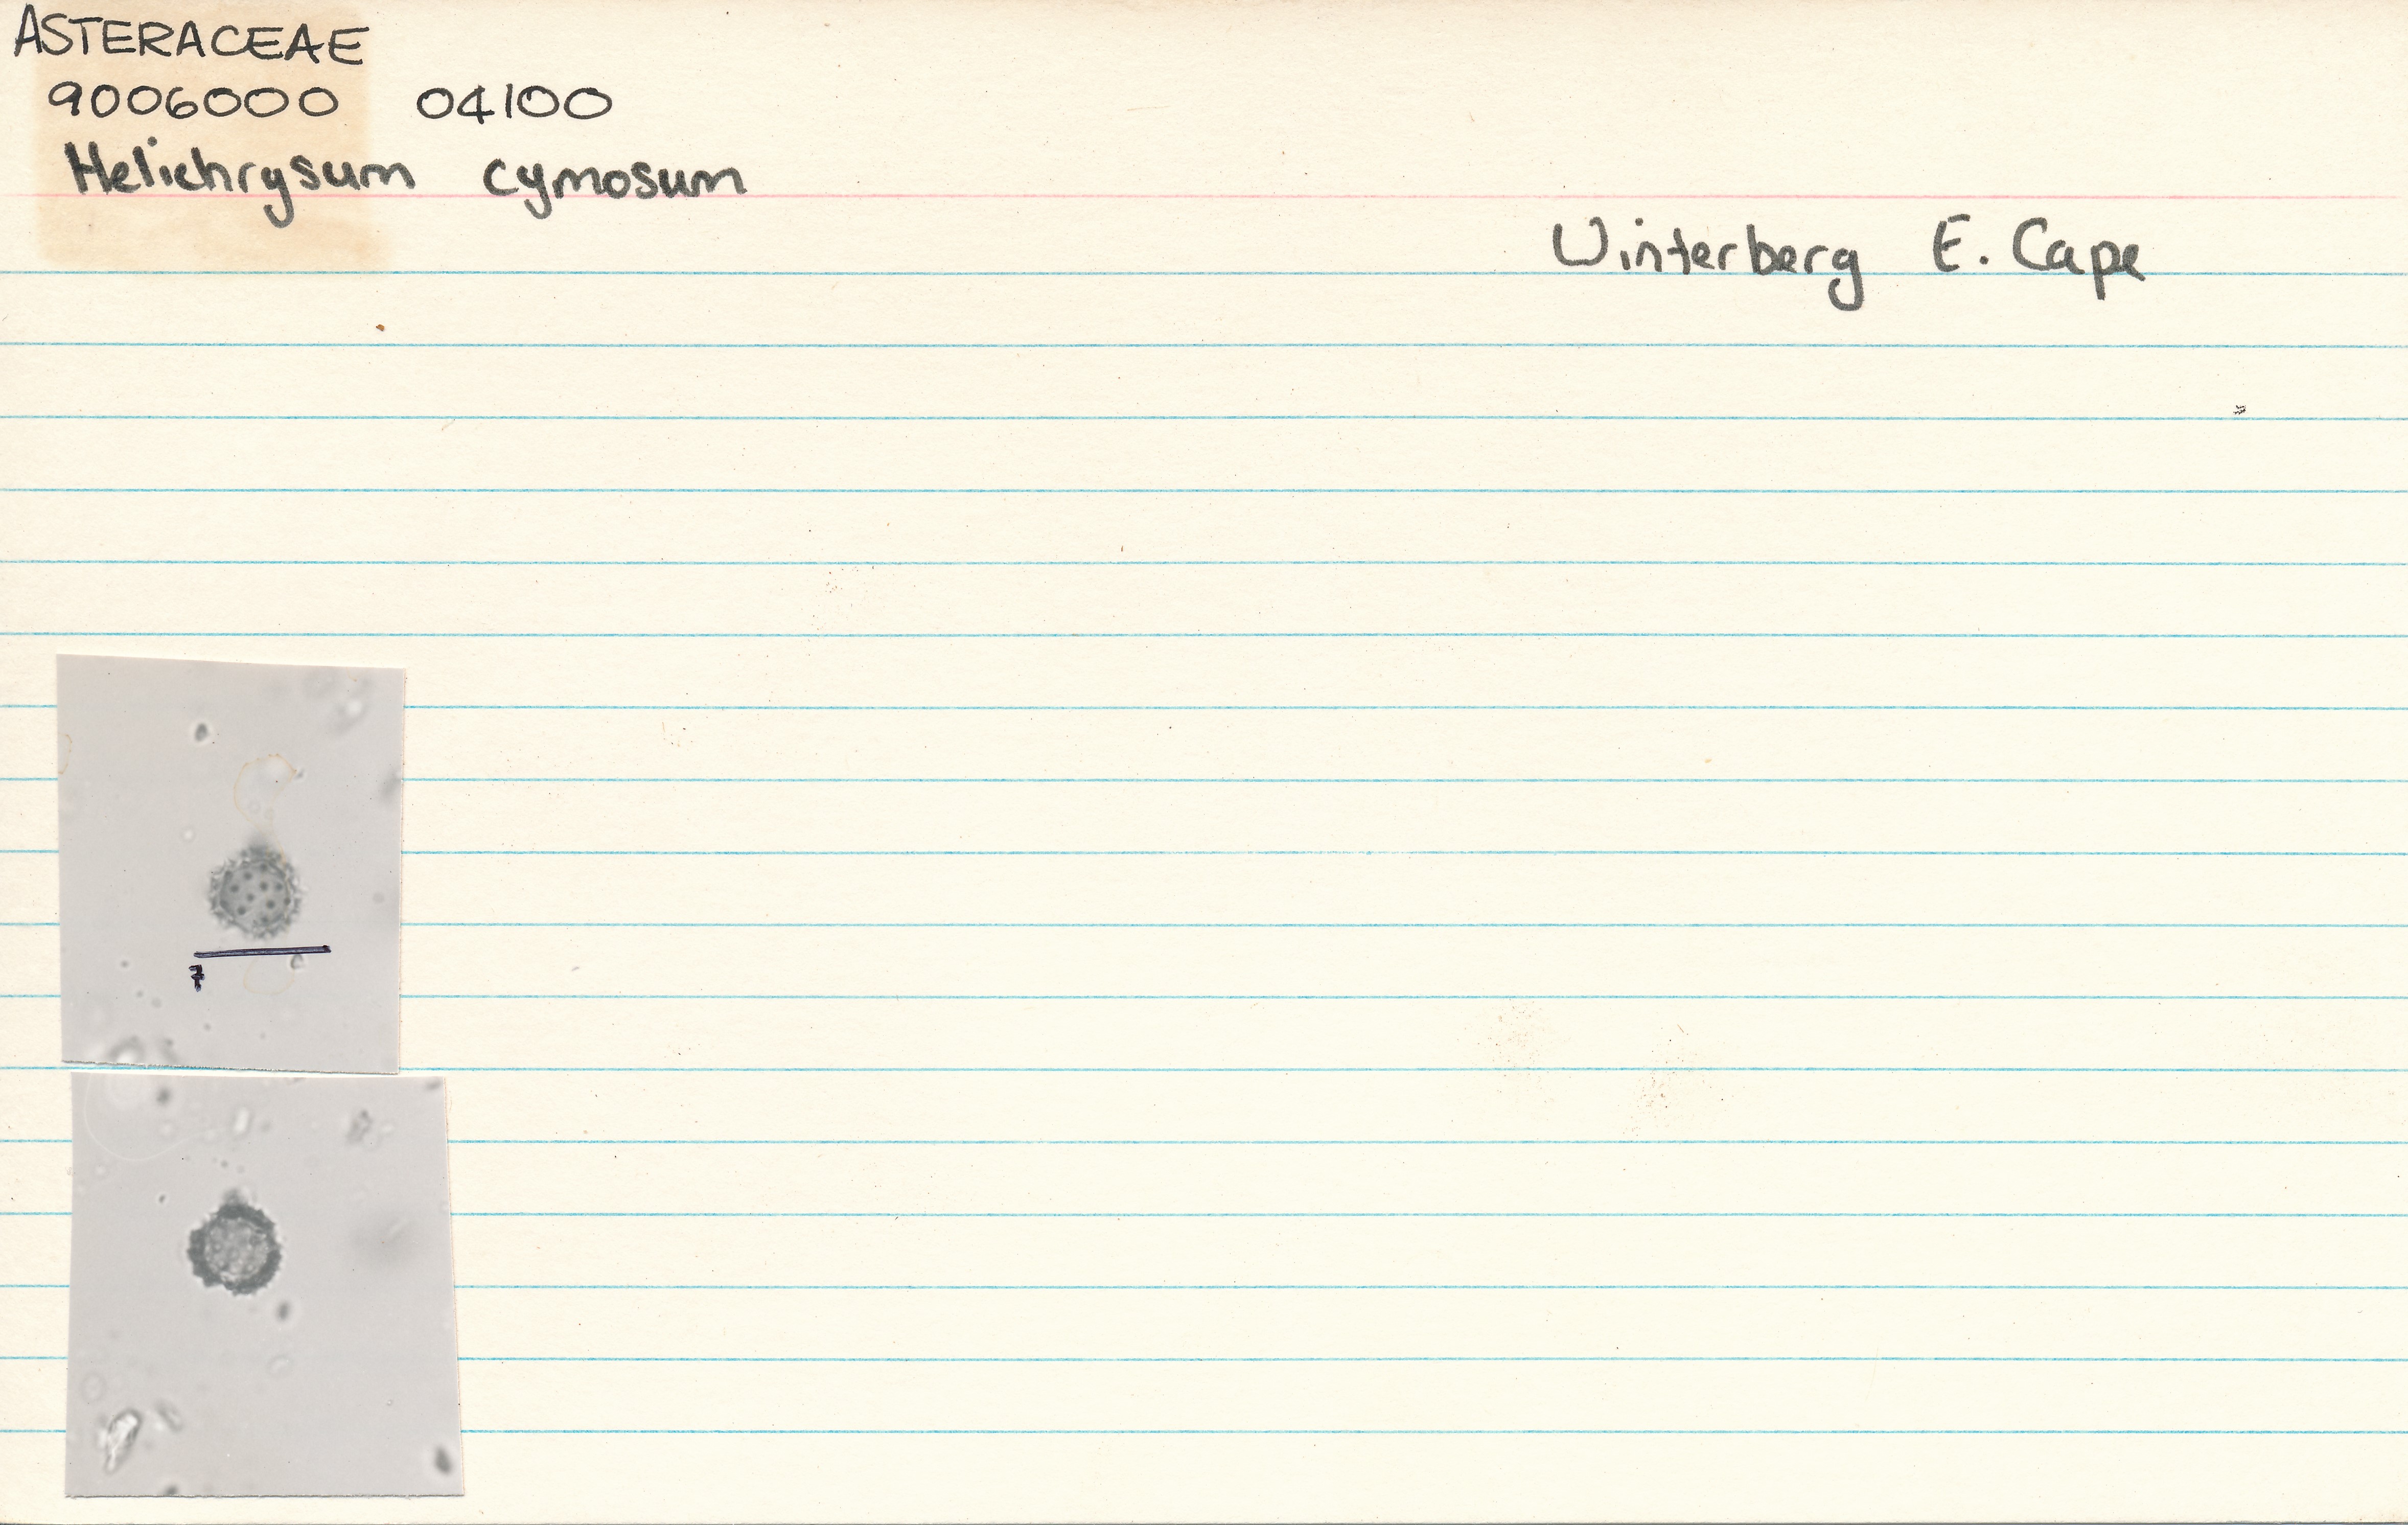 ASTERACEAE
9006000 04100
Helichrysum cymosum
Winterberg E. Cape